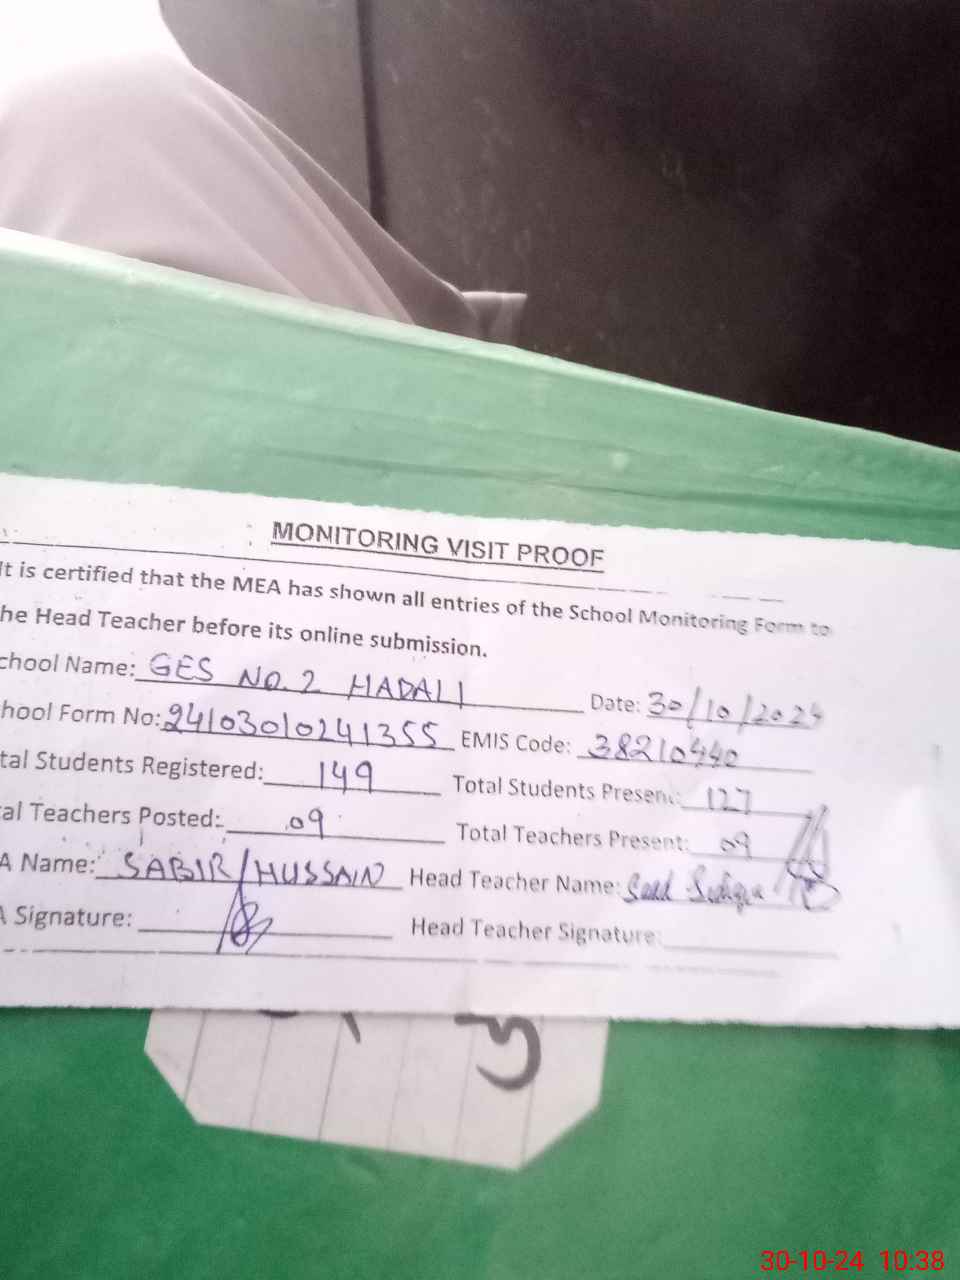 MONITORING VISIT PROOF
It is certified that the MEA has shown all entries of the School Monitoring Form to
he Head Teacher before its online submission.
chool Name: GES NO. 2 HADALI Date: 30/10/2024
hool Form No: 24103010241355 EMIS Code: 38210440
tal Students Registered: 149 Total Students Present: 127
al Teachers Posted: 09 Total Teachers Present: 09
A Name: SABIR HUSSAIN Head Teacher Name:
A Signature: Head Teacher Signature:
30-10-24 10:38